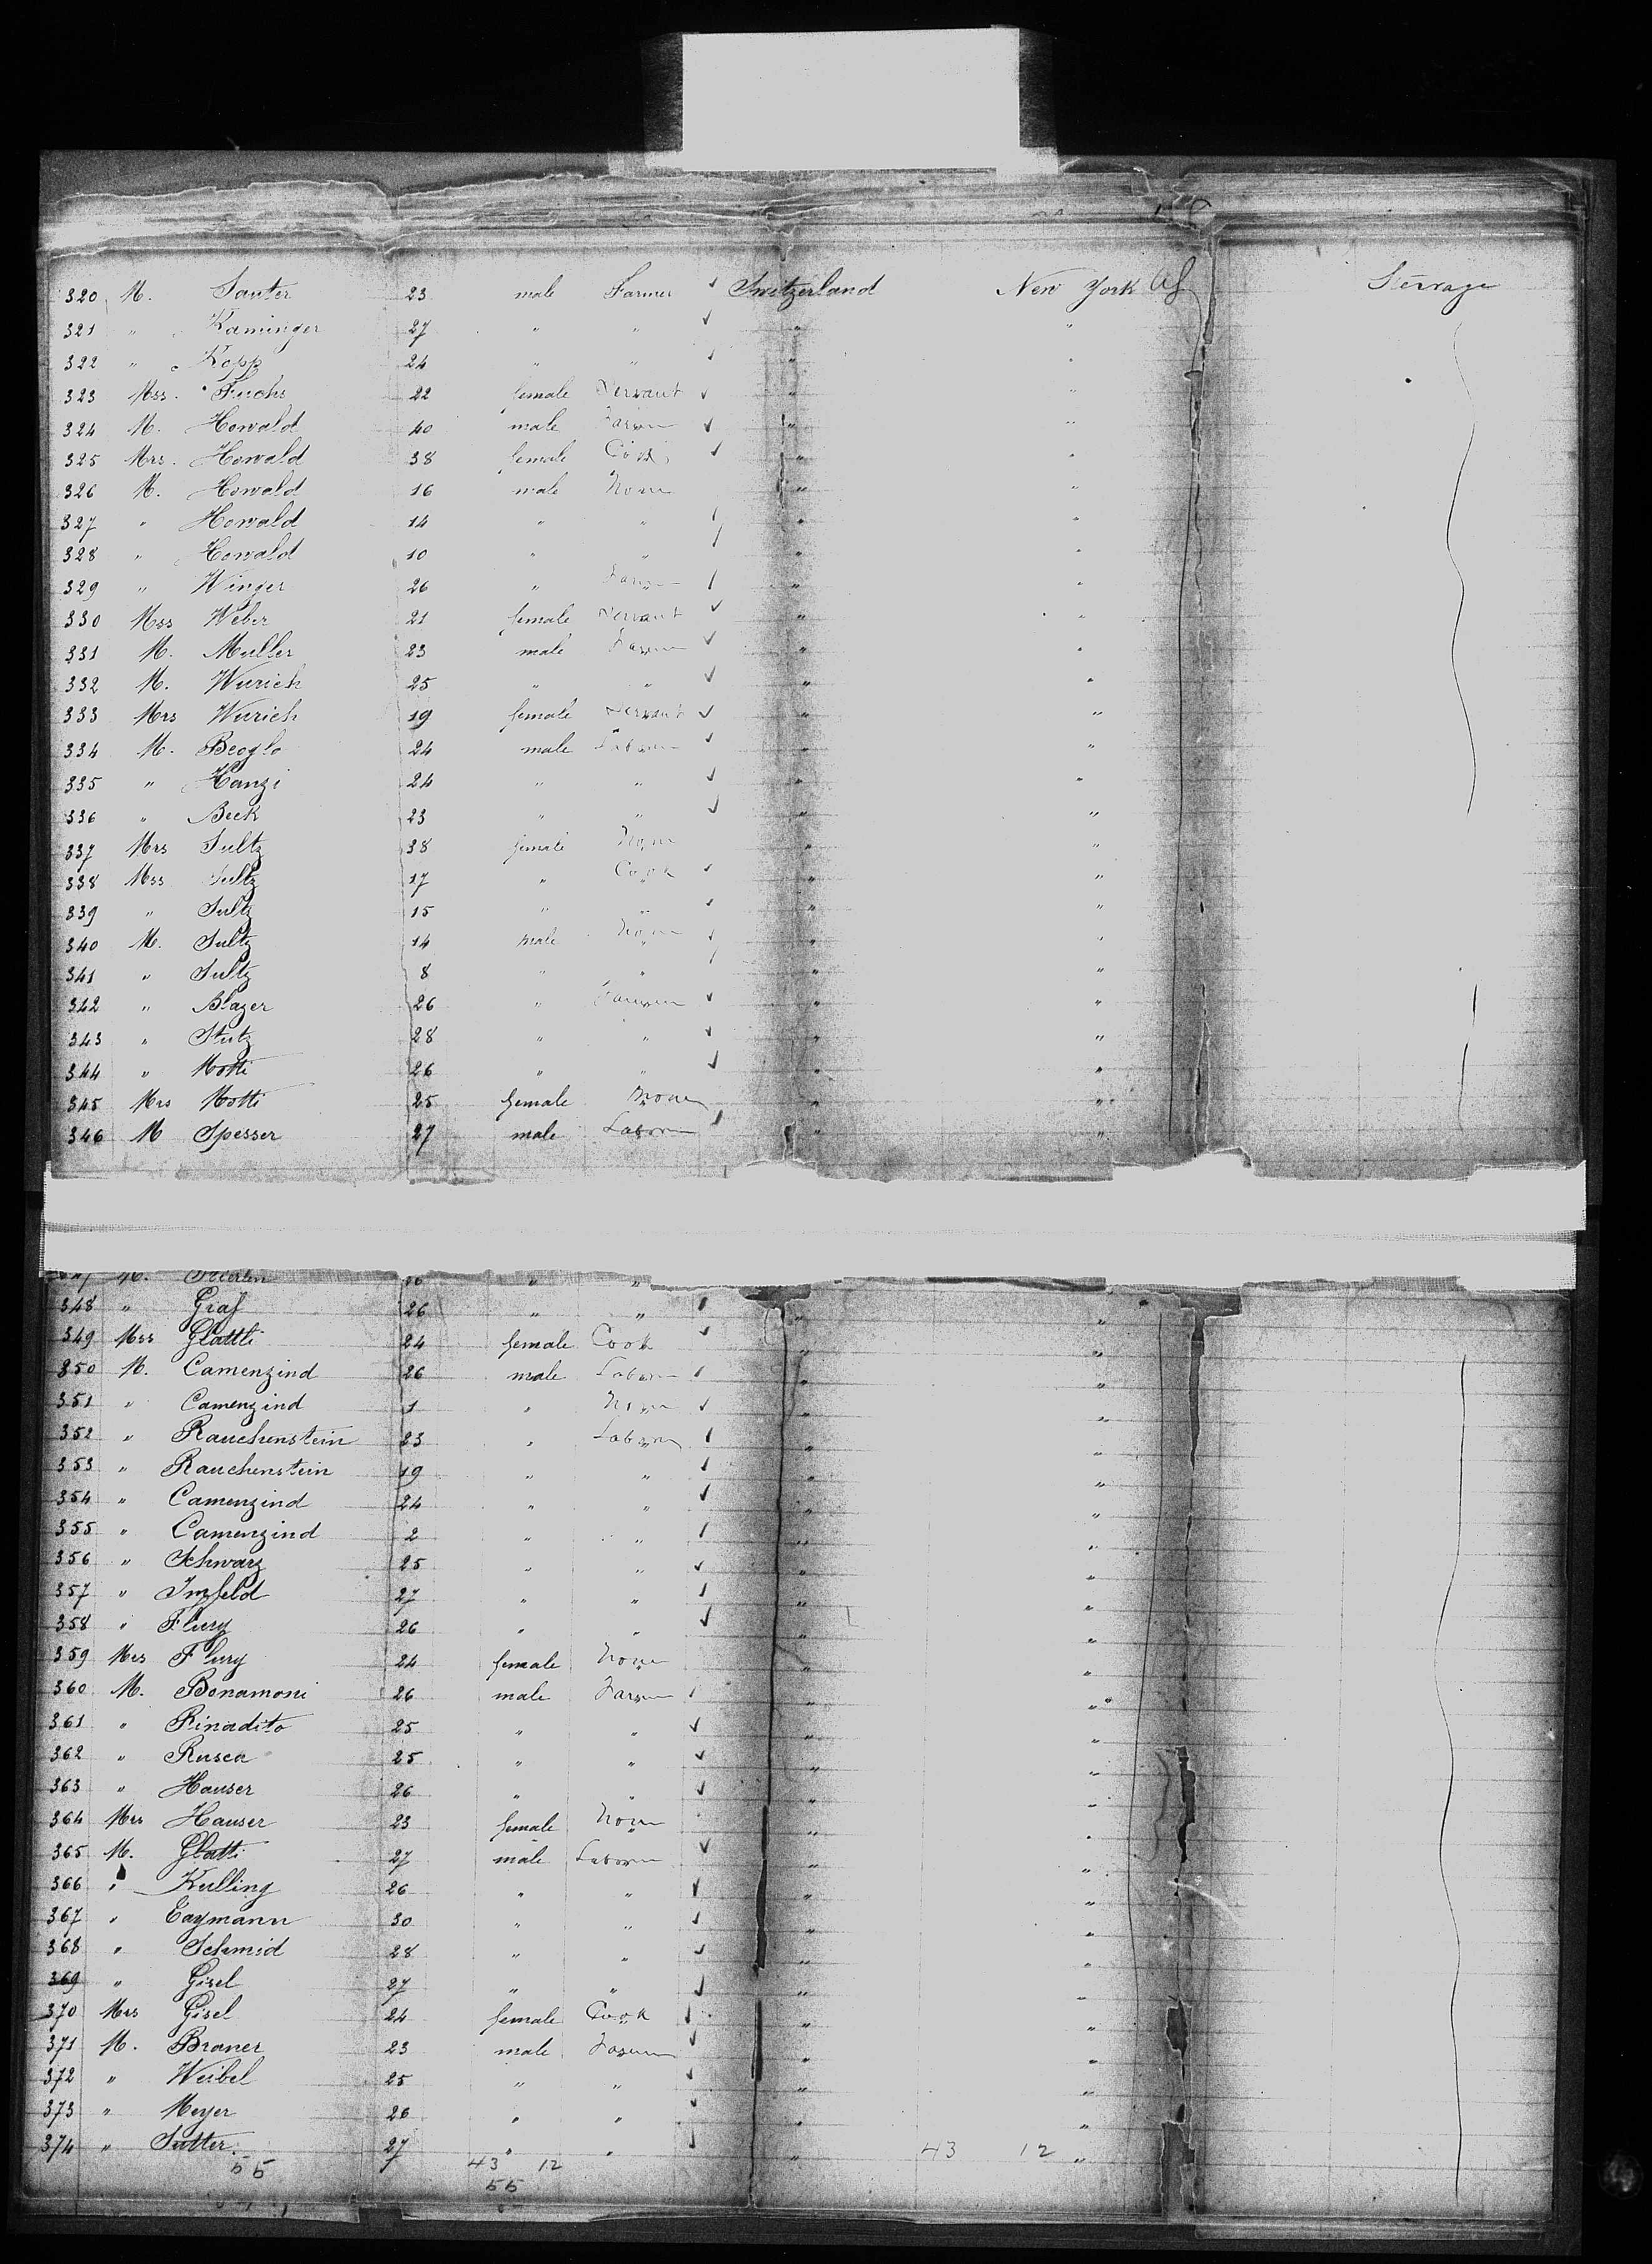 320 M. Sauter 23 male Farmer ✓ Switzerland New York Sterrage
321 " Kaminger 27 " " ✓ " "
322 " Kopp 24 " " ✓ " "
323 Mss. Fuchs 22 female Servant ✓ " "
324 M. Howald 40 male Farmer ✓ " "
325 Mrs. Howald 38 female Cook ✓ " "
326 M. Howald 16 male None " "
327 " Howald 14 " " " "
328 " Howald 10 " " " "
329 " Winger 26 " Farmer " "
330 Mss Weber 21 female Servant ✓ " "
331 M. Muller 23 male Farmer ✓ " "
332 M. Wurich 25 " " ✓ " "
333 Mrs Wurich 19 female Servant ✓ " "
334 M. Beoglo 24 male Laborer ✓ " "
335 " Hanzi 24 " " ✓ " "
336 " Beck 23 " " ✓ " "
337 Mrs Sultz 38 female None " "
338 Mss Sultz 17 " Cook ✓ " "
339 " Sultz 15 " " ✓ " "
340 M. Sultz 14 male None " "
341 " Sultz 8 " " " "
342 " Blazer 26 " Farmer ✓ " "
343 " Stutz 28 " " ✓ " "
344 " Motti 26 " " ✓ " "
345 Mrs Motti 25 female None " "
346 M Spesser 27 male Laborer " "
M. " "
348 " Graf 26 " " " "
349 Mss Glattli 24 female Cook ✓ " "
350 M. Camenzind 26 male Laborer " "
351 " Camenzind 1 " None ✓ " "
352 " Rauchenstein 23 " Laborer " "
353 " Rauchenstein 19 " " ✓ " "
354 " Camenzind 24 " " ✓ " "
355 " Camenzind 2 " " " "
356 " Schwarz 25 " " ✓ " "
357 " Imfeld 27 " " ✓ " "
358 " Flury 26 " " ✓ " "
359 Mrs Flury 24 female None " "
360 M. Bonamoni 26 male Farmer " "
361 " Rinadito 25 " " ✓ " "
362 " Rusca 25 " " ✓ " "
363 " Hauser 26 " " ✓ " "
364 Mrs Hauser 23 female None " "
365 M. Glatti 27 male Laborer ✓ " "
366 " Kulling 26 " " ✓ " "
367 " Eaymann 30 " " ✓ " "
368 " Schmid 28 " " ✓ " "
369 " Gisel 27 " " ✓ " "
370 Mrs Gisel 24 female Cook ✓ " "
371 M. Braner 23 male Farmer ✓ " "
372 " Weibel 25 " " ✓ " "
373 " Meyer 26 " " ✓ " "
374 " Sutter 27 " " ✓ " 43 12 "
55 43 12
55